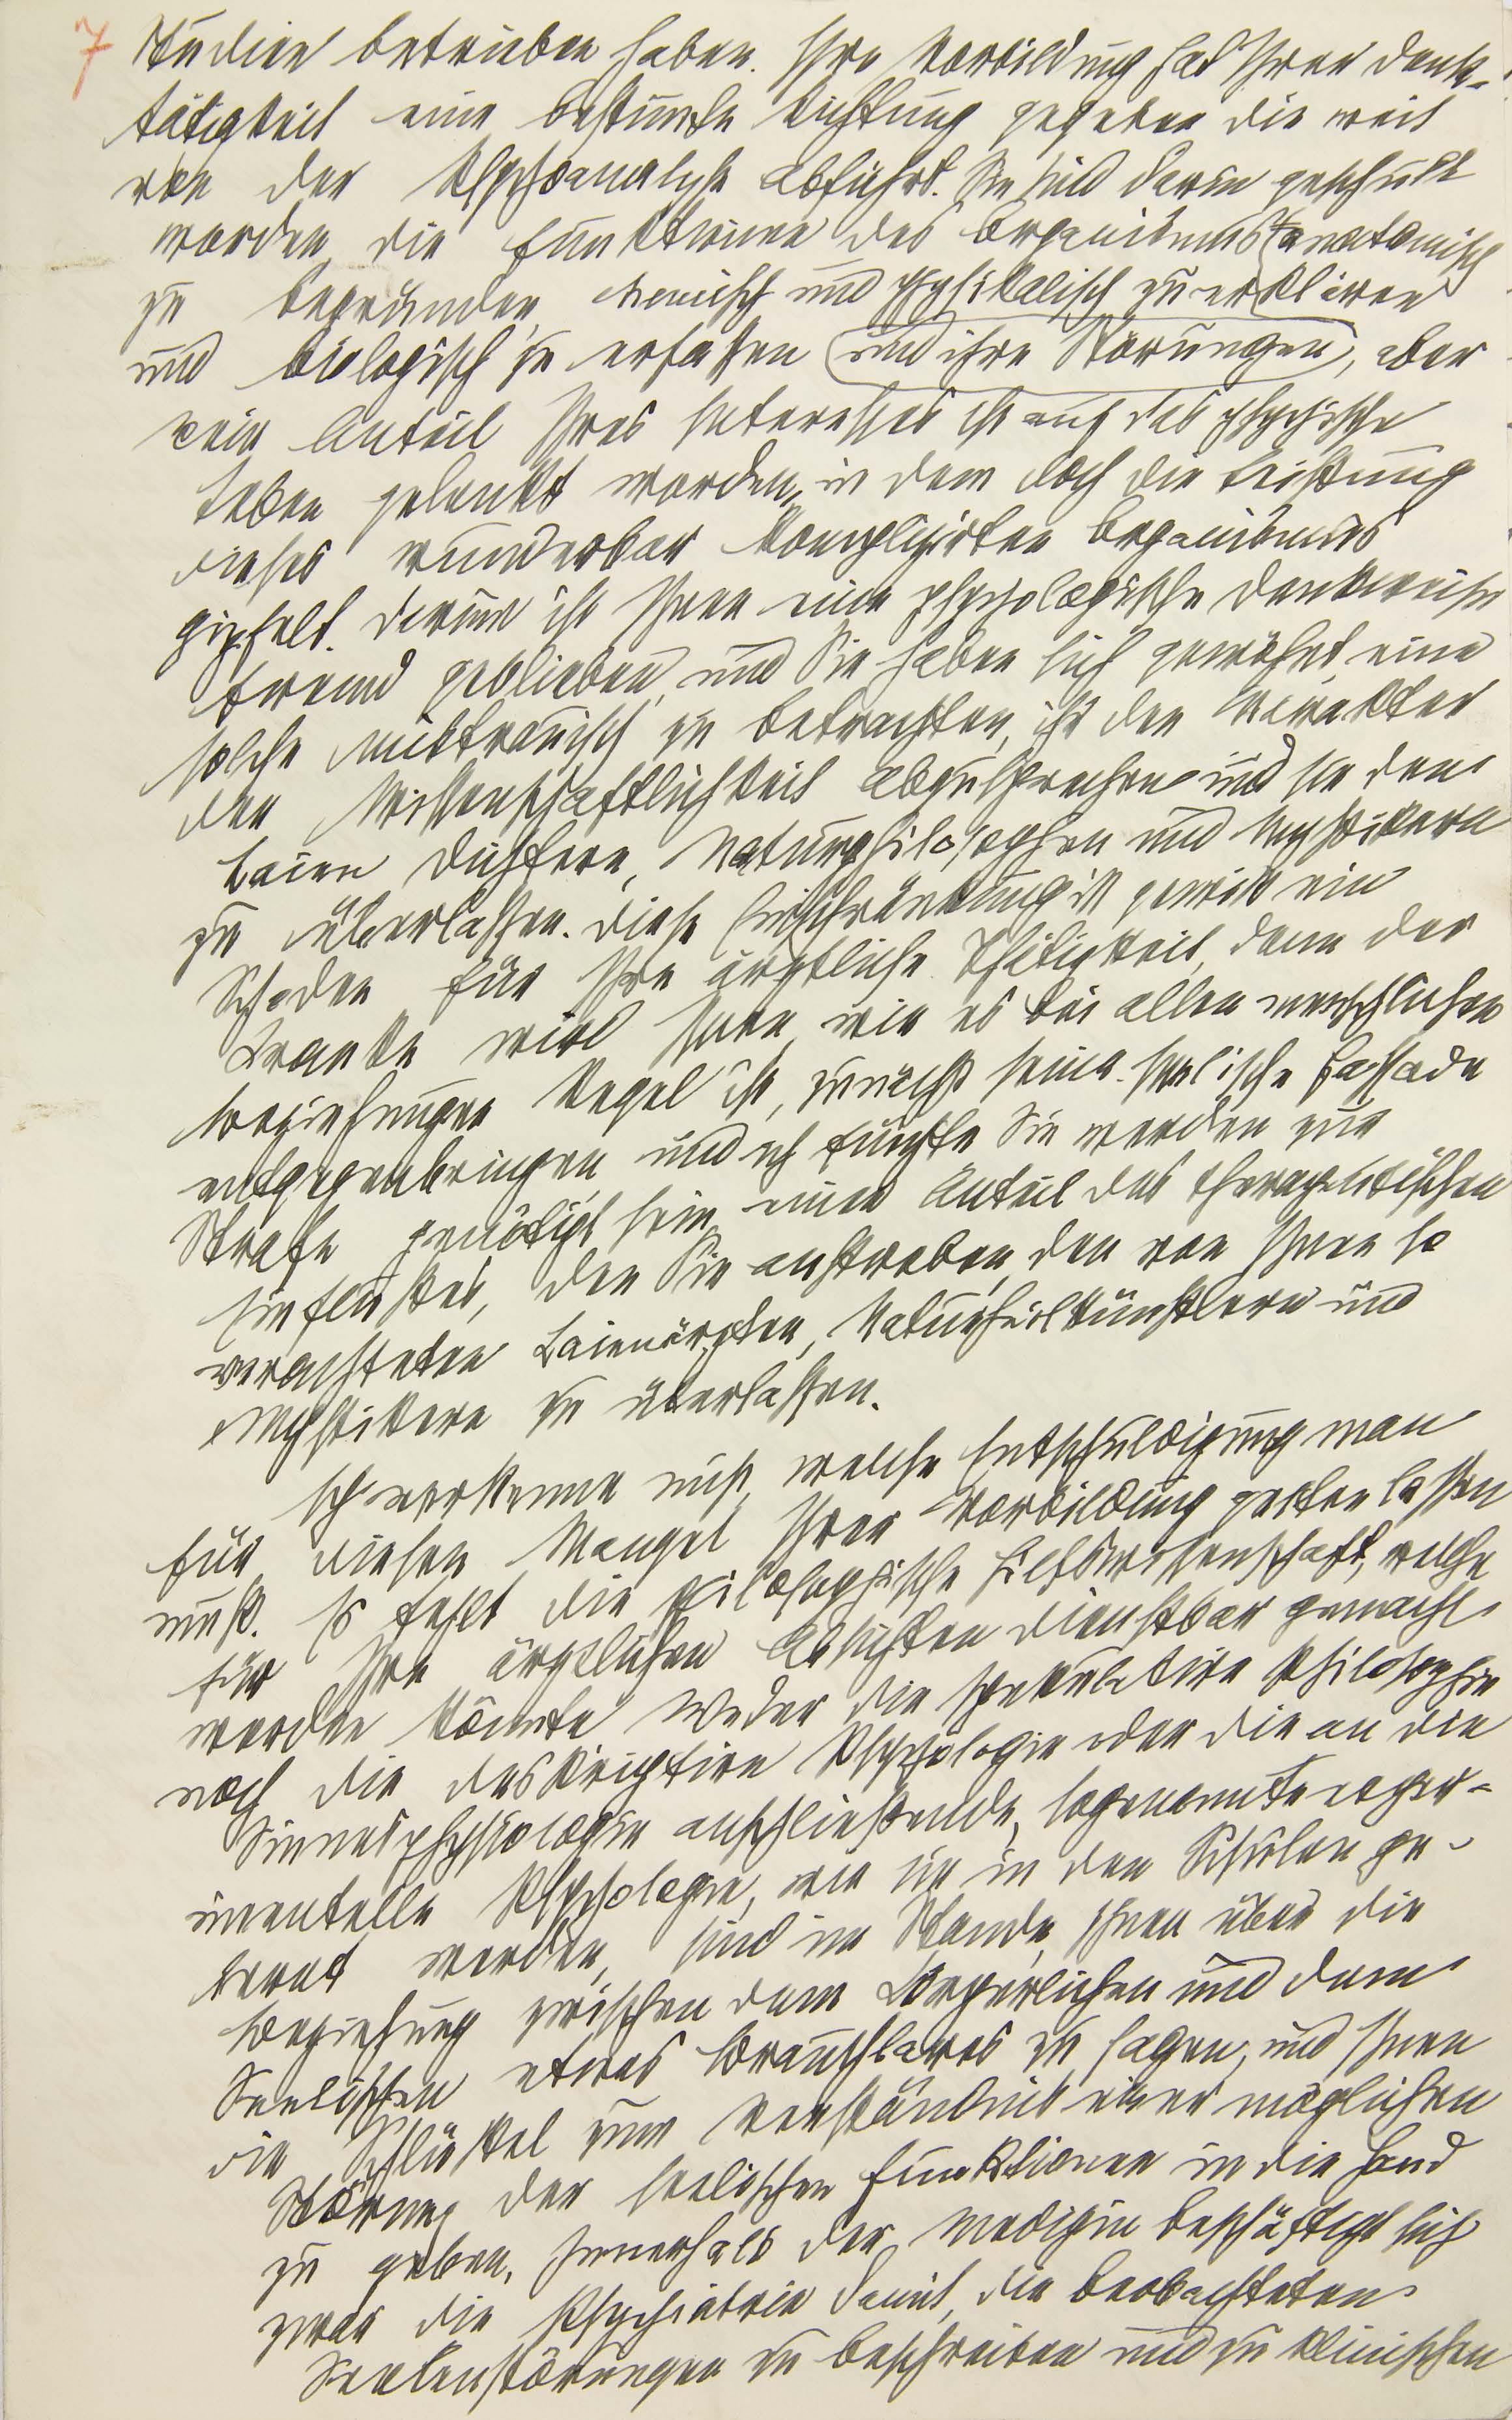 7 Studien betrieben haben. Ihre Vorbildung hat Ihrer Denk-
tätigkeit eine bestimmte Richtung gegeben die weit
von der Psychoanalyse abführt. Sie sind darin geschult
worden, die Funktionen des Organismus anatomisch
zu begründen, chemisch und physikalisch zu erklären
und biologisch zu erfassen und ihre Störungen, aber
kein Anteil Ihres Interesses ist auf das psychische
Leben gelenkt worden, in dem doch die Leistung
dieses wunderbar komplizirten Organismus
gipfelt. Darum ist Ihnen eine psychologische Denkweise
fremd geblieben, und Sie haben sich gewöhnt, eine
solche mißtrauisch zu betrachten, ihr den Charakter
der Wissenschaftlichkeit abzusprechen und sie den
Laien, Dichtern, Naturphilosophen und Mystikern
zu überlassen. Diese Einschränkung ist gewiß ein
Schaden für Ihre ärztliche Thätigkeit, denn der
Kranke wird Ihnen, wie es bei allen menschlichen
Beziehungen Regel ist, zunächst seine seelische Fassade
entgegenbringen, und ich fürchte Sie werden zur
Strafe genötigt sein, einen Anteil des therapeutischen
Einflusses, den Sie anstreben, den von Ihnen so
verachteten Laienärzten, Naturheilkünstlern und
Mystikern zu überlassen.
Ich verkenne nicht, welche Entschuldigung man
für diesen Mangel Ihrer Vorbildung gelten lassen
muß. Es fehlt die philosophische Hilfswissenschaft, welche
für Ihre ärztlichen Absichten dienstbar gemacht
werden könnte. Weder die spekulative Philosophie
noch die deskriptive Psychologie oder die an die
Sinnesphysiologie anschließende, sogenannte exper-
imentelle Psychologie, wie sie in den Schulen ge-
lernt werden, sind im Stande, Ihnen über die
Beziehung zwischen dem Körperlichen und dem
Seelischen etwas Brauchbares zu sagen, und Ihnen
die Schlüssel zum Verständnis einer möglichen
Störung der seelischen Funktionen in die Hand
zu geben. Innerhalb der Medizin beschäftigt sich
zwar die Psychiatrie damit, die beobachteten
Seelenstörungen zu beschreiben und zu klinischen